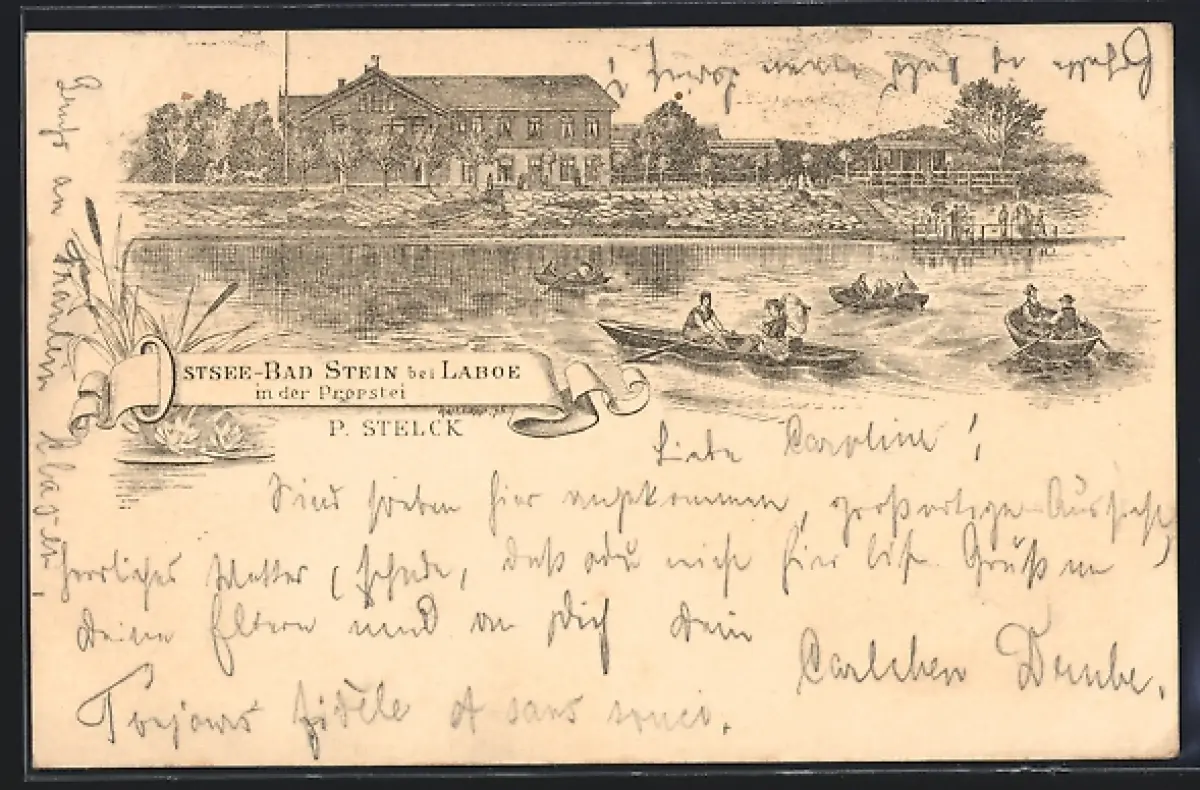 OSTSEE-BAD STEIN bei LABOE
in der Propstei
P. STELCK
Liebe Caroline!
Sind soeben hier angekommen, großartige Aussicht,
herrliches Wetter, schade, daß du nicht hier bist. Gruß an
Deine Eltern und an Dich Dein
Carlchen
Toujours fidèle et sans souci.
Gruß an Fräulein